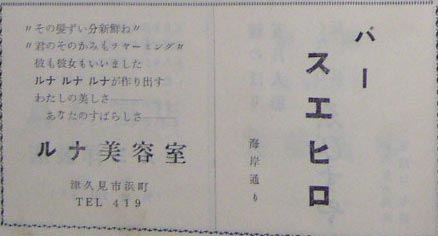 〃その髪ずい分新鮮ね〃
〃君のそのかみもチャーミング〃
彼も彼女もいいました
ルナ ルナ ルナが作り出す
わたしの美しさ
あなたのすばらしさ
ルナ美容室
津久見市浜町
TEL 419
バー
スエヒロ
海岸通り